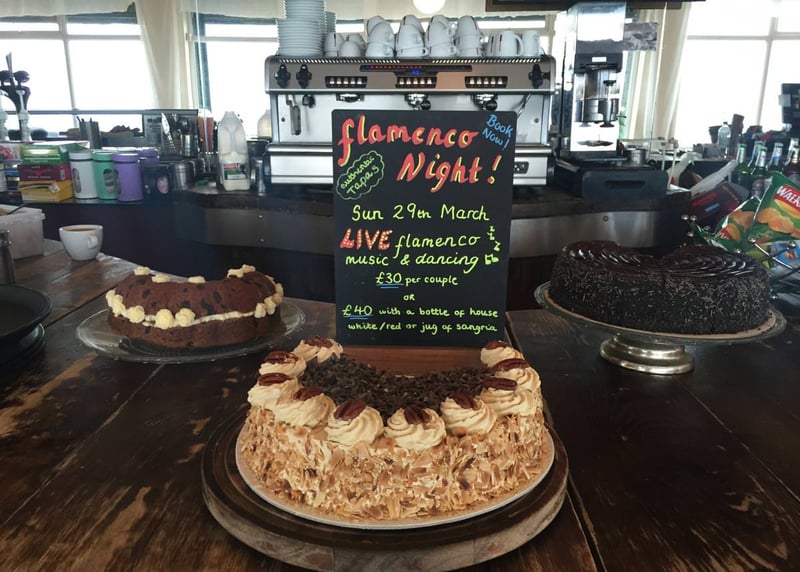 flamenco
Night!
Book
Now!
authentic
Tapas
Sun 29th March
LIVE flamenco
music & dancing
£30 per couple
OR
£40 with a bottle of house
white/red or jug of sangria
WALK